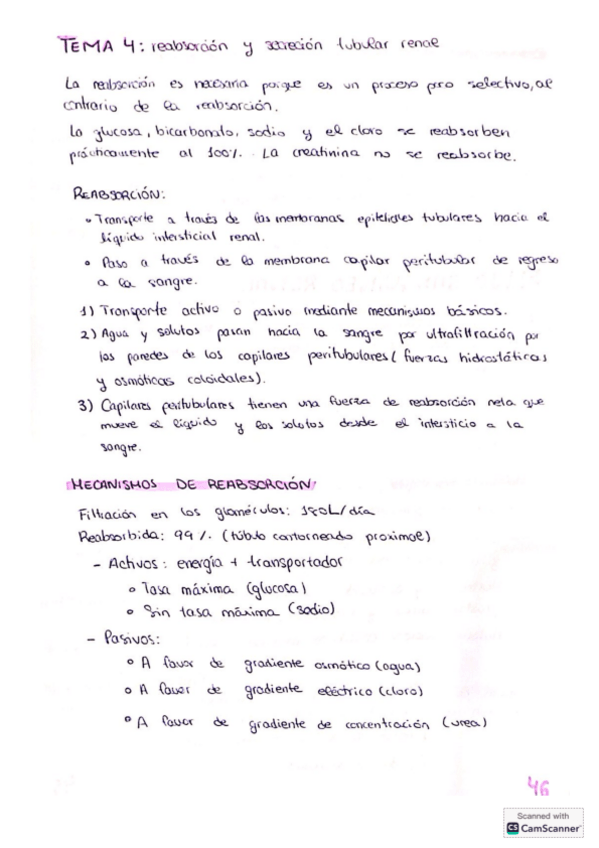 TEMA 4: reabsorción y secreción tubular renal
La reabsorción es necesaria porque es un proceso poco selectivo, al
contrario de la reabsorción.
La glucosa, bicarbonato, sodio y el cloro se reabsorben
prácticamente al 100%. La creatinina no se reabsorbe.
REABSORCIÓN:
• Transporte a través de las membranas epiteliales tubulares hacia el
líquido intersticial renal.
• Paso a través de la membrana capilar peritubular de regreso
a la sangre.
1) Transporte activo o pasivo mediante mecanismos básicos.
2) Agua y solutos pasan hacia la sangre por ultrafiltración por
las paredes de los capilares peritubulares (fuerzas hidrostáticas
y osmóticas coloidales).
3) Capilares peritubulares tienen una fuerza de reabsorción neta que
mueve el líquido y los solutos desde el intersticio a la
sangre.
MECANISMOS DE REABSORCIÓN:
Filtración en los glomérulos: 180L/día
Reabsorbida: 99%. (túbulo contorneado proximal)
- Activos: energía + transportador
• Tasa máxima (glucosa)
• Sin tasa máxima (sodio)
- Pasivos:
• A favor de gradiente osmótico (agua)
• A favor de gradiente eléctrico (cloro)
• A favor de gradiente de concentración (urea)
46
Scanned with
CS CamScanner